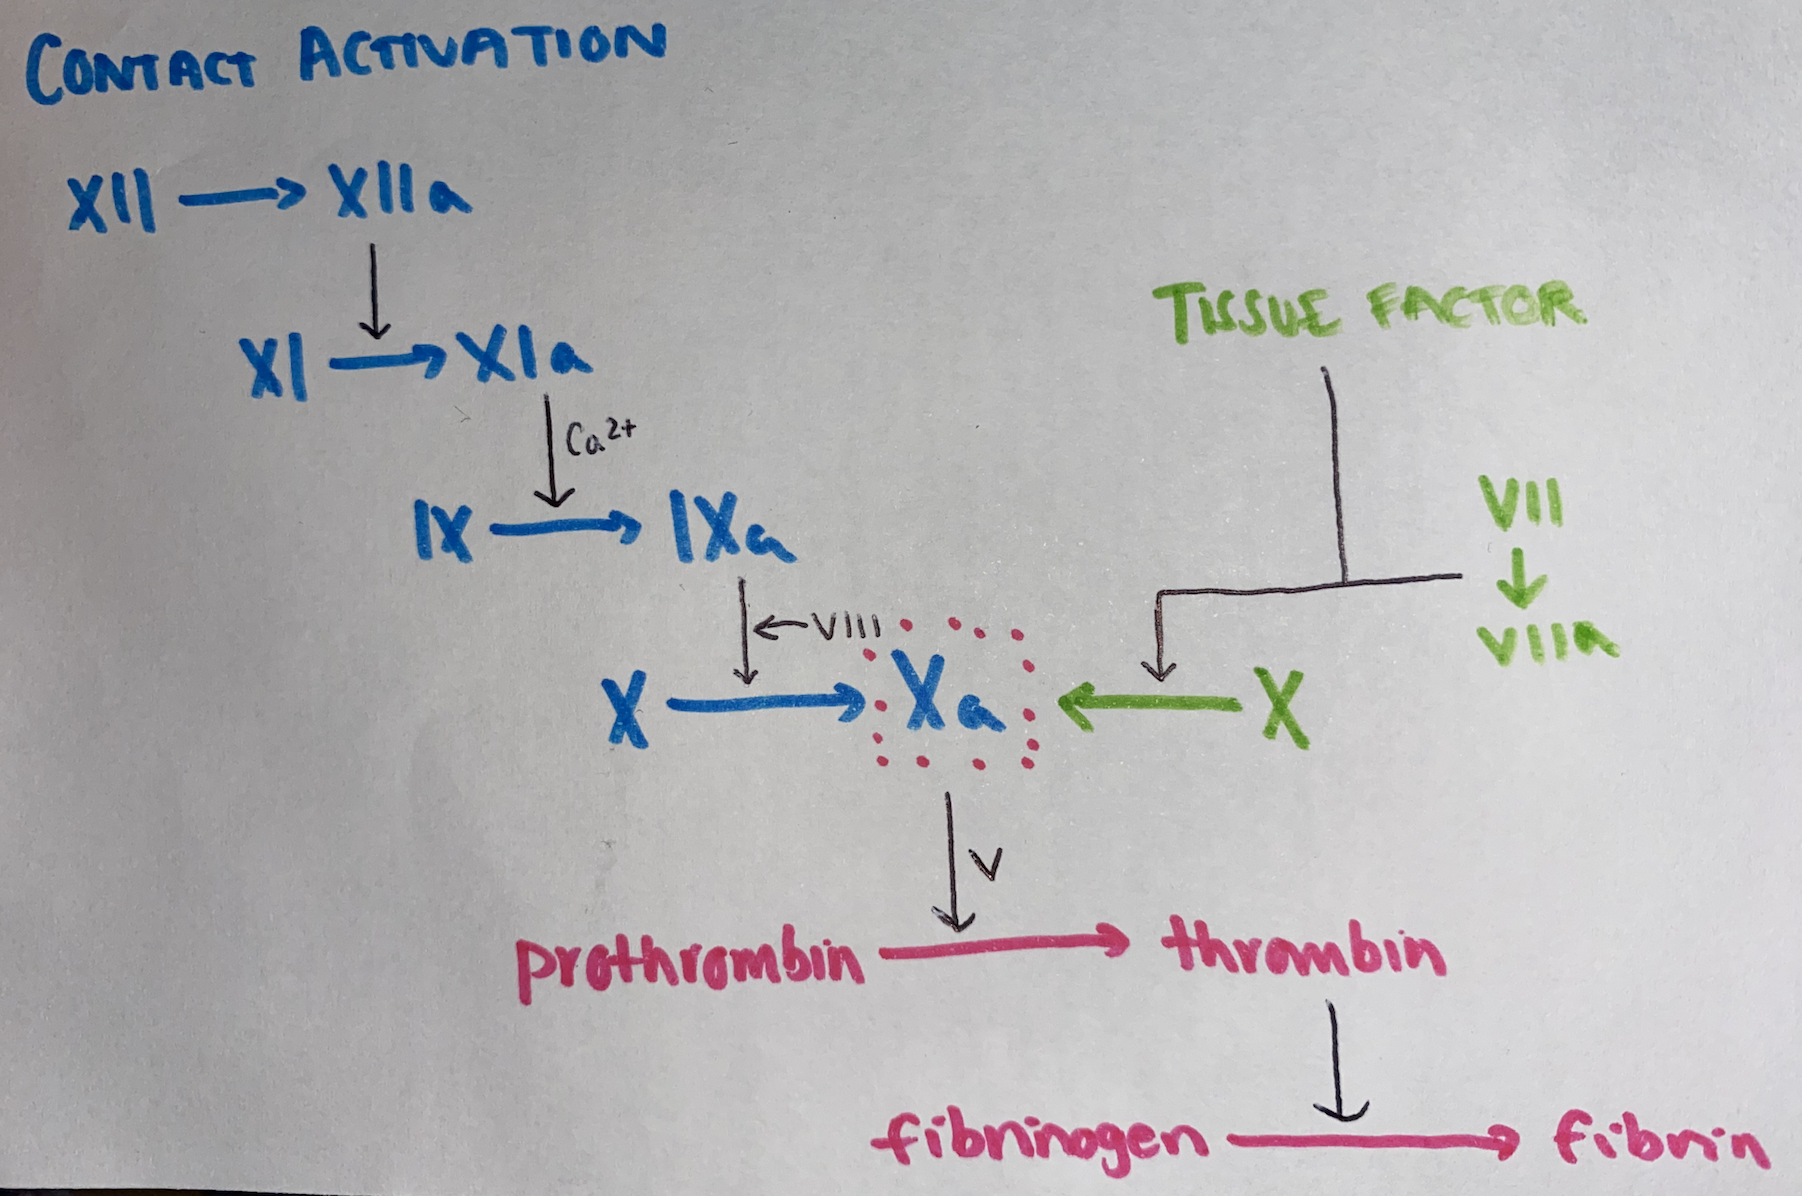 CONTACT ACTIVATION
XII → XIIa
XI → XIa
Ca²⁺
IX → IXa
VIII
X → Xa ← X
TISSUE FACTOR
VII
↓
VIIa
V
prothrombin → thrombin
fibrinogen → fibrin